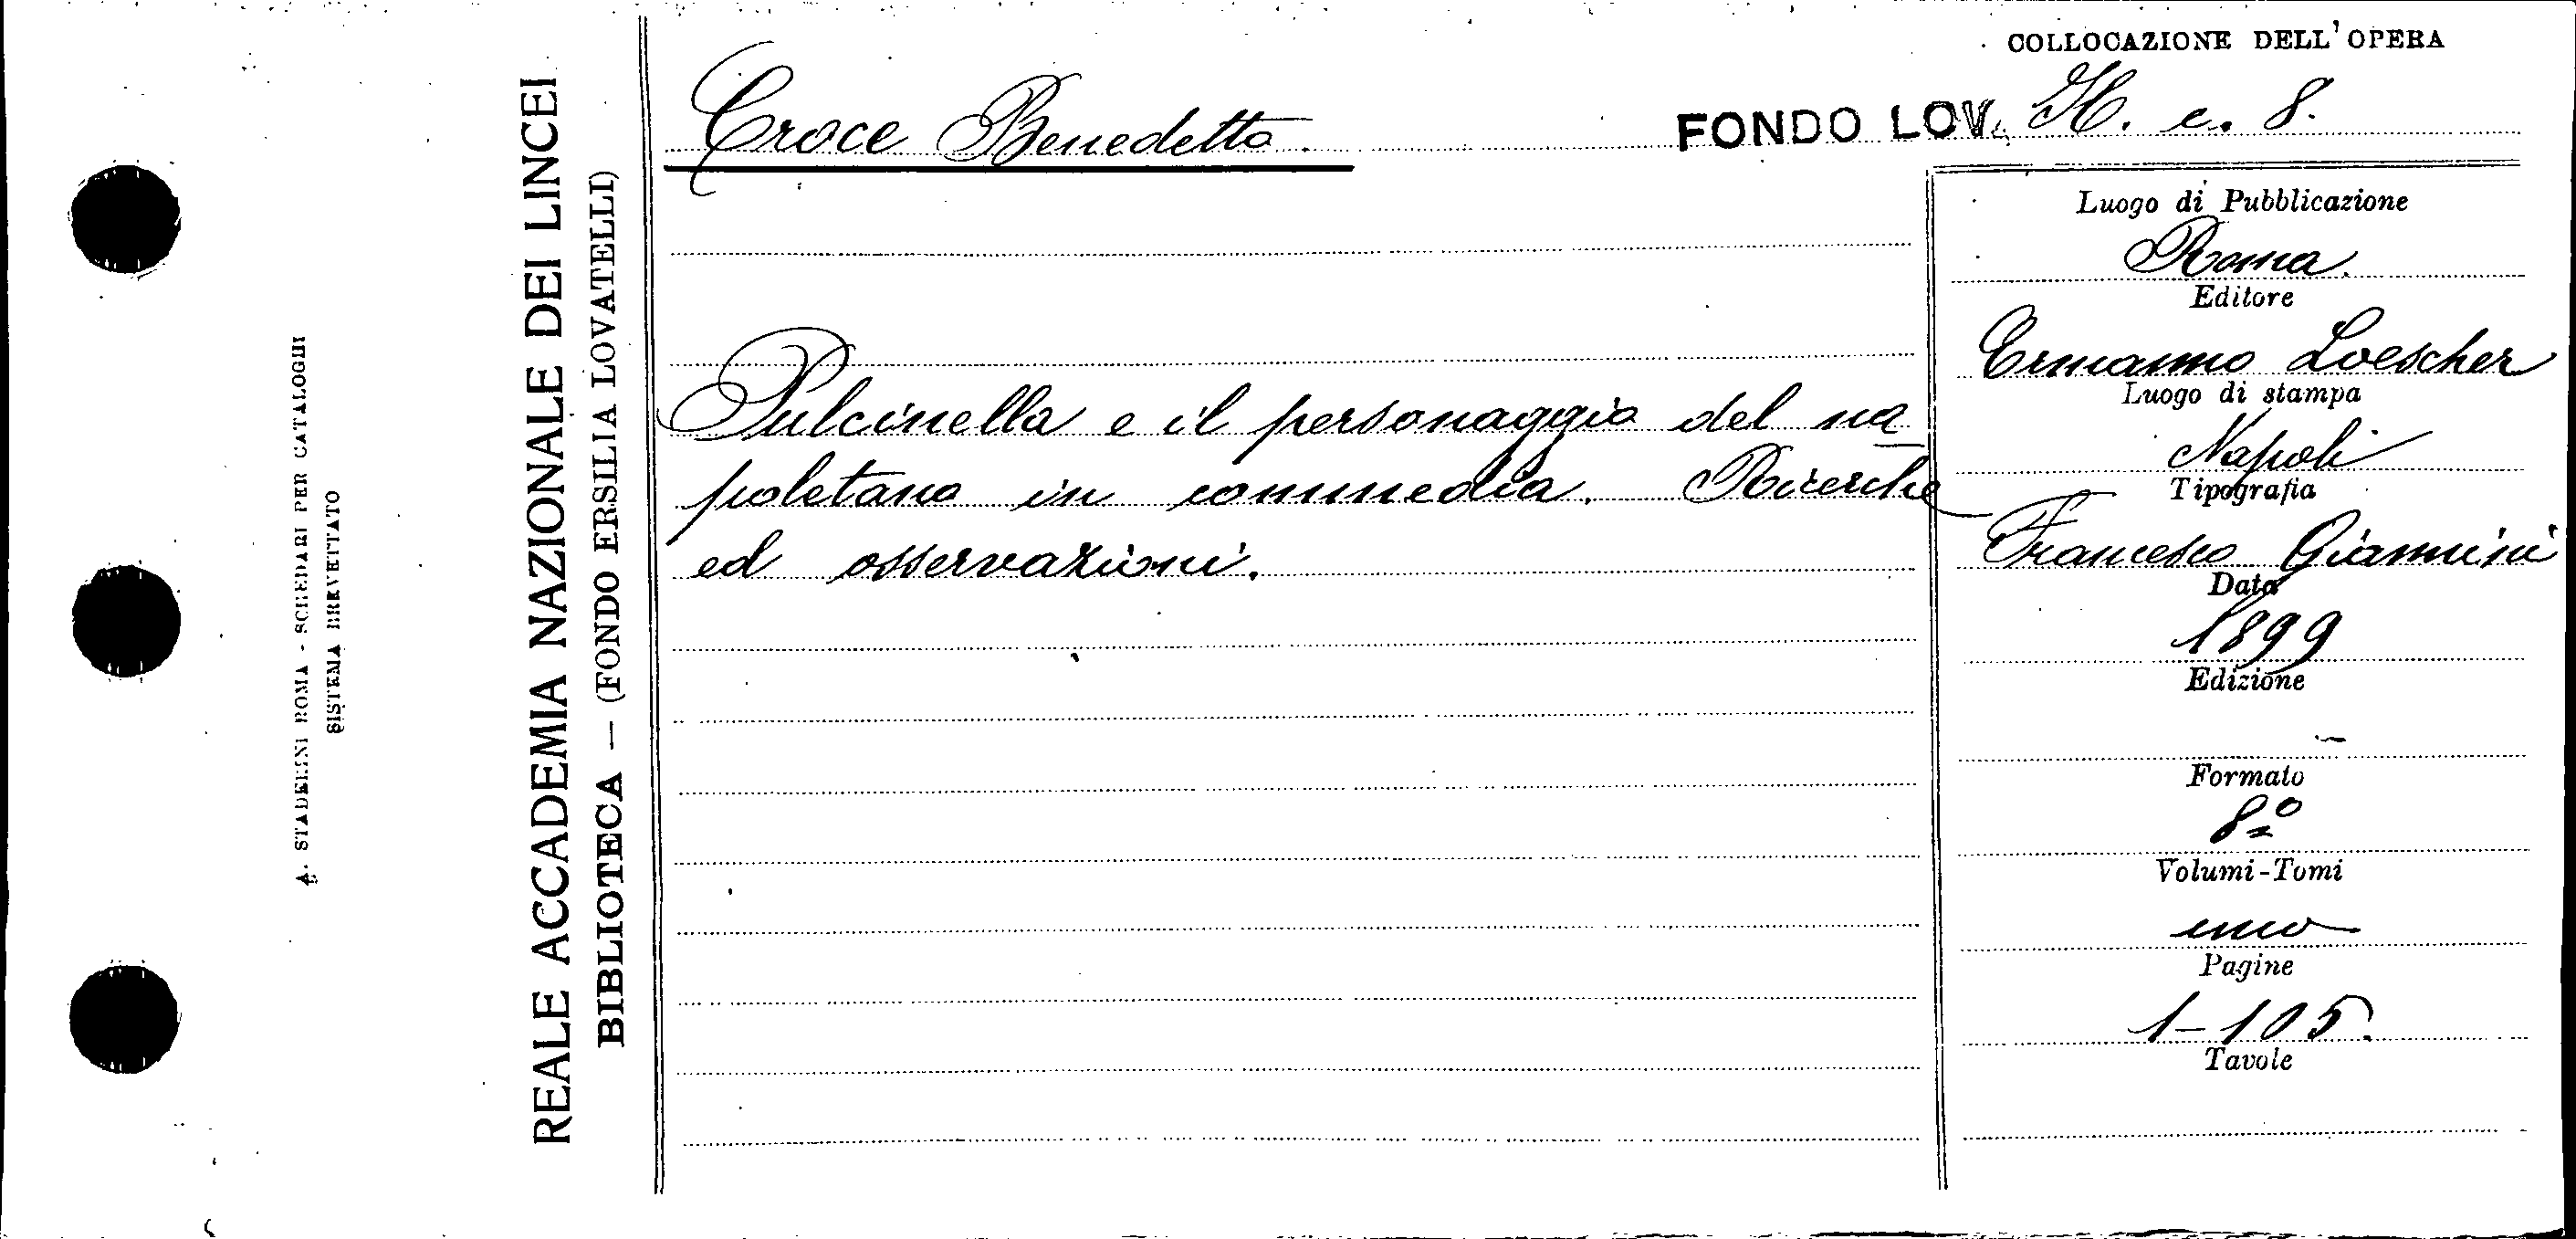 COLLOCAZIONE DELL'OPERA
Croce Benedetto.
FONDO LOV. H. c. 8.
Pulcinella e il personaggio del na
poletano in commedia. Ricerche
ed osservazioni.
Luogo di Pubblicazione
Roma.
Editore
Ermanno Loescher
Luogo di stampa
Napoli
Tipografia
Francesco Giannini
Data
1899
Edizione
—
Formato
8º
Volumi-Tomi
uno
Pagine
1-105.
Tavole
REALE ACCADEMIA NAZIONALE DEI LINCEI
BIBLIOTECA — (FONDO ERSILIA LOVATELLI)
A. STADERINI ROMA - SCHEDARI PER CATALOGHI
SISTEMA BREVETTATO